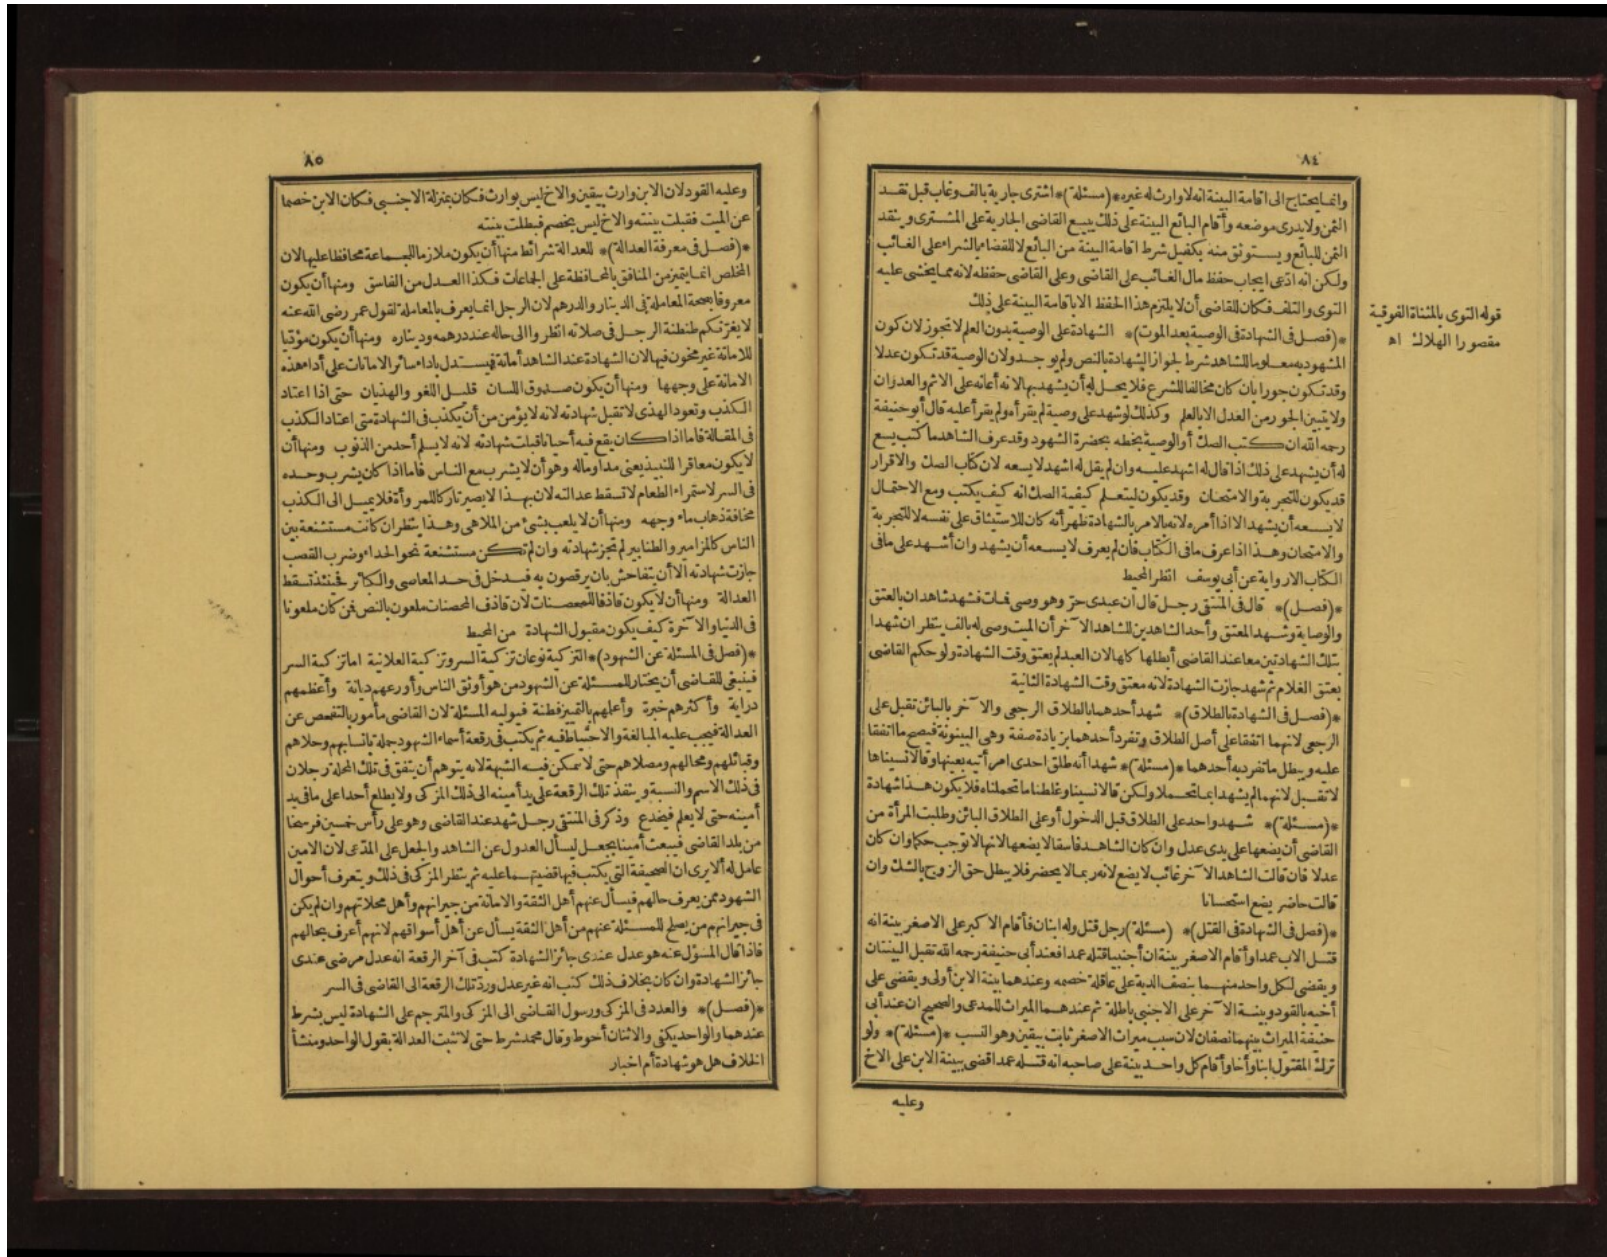 ٨٤
وانما يحتاج الى اقامة البينة انه لا وارث له غيره *(مسئلة)* اشترى جارية بالف وغاب قبل نقد
الثمن ولا يدرى موضعه وأقام البائع البينة على ذلك يبيع القاضى الجارية على المشترى وينقد
الثمن للبائع ويستوثق منه بكفيل شرط اقامة البينة من البائع لا للقضاء بالشراء على الغائب
ولكن انه ادّعى ايجاب حفظ مال الغائب على القاضى وعلى القاضى حفظه لانه مما يخشى عليه
التوى والتلف فكان للقاضى أن لا يلتزم هذا الحفظ الا باقامة البينة على ذلك
*(فصل فى الشهادة فى الوصية بعد الموت)* الشهادة على الوصية بدون العلم لا تجوز لان كون
المشهود به معلوما للشاهد شرط لجواز الشهادة بالنص ولم يوجد ولان الوصية قد تكون عدلا
وقد تكون جورا بأن كان مخالفا للشرع فلا يحل له أن يشهد بها لانه أعانه على الاثم والعدوان
ولا يتبين الجور من العدل الا بالعلم وكذلك لو شهد على وصية لم يقرأه ولم يقرأ عليه قال أبو حنيفة
رحمه الله ان كتب الصك أو الوصية بخطه بحضرة الشهود وقد عرف الشاهد ما كتب يسع
له أن يشهد على ذلك اذا قال له اشهد عليه وان لم يقل له اشهد لا يسعه لان كتاب الصك والاقرار
قد يكون للتجربة والامتحان وقد يكون ليتعلم كيفية الصك انه كيف يكتب ومع الاحتمال
لا يسعه أن يشهد الا اذا أمره لانه بالامر بالشهادة ظهر أنه كان للاستيثاق على نفسه لا للتجربة
والامتحان وهذا اذا عرف ما فى الكتاب فان لم يعرف لا يسعه أن يشهد وان أشهد على ما فى
الكتاب الا رواية عن أبى يوسف انظر المحيط
*(فصل)* قال فى المنتقى رجل قال ان عبدى حرّ وهو وصى فمات فشهد شاهدان بالعتق
والوصاية وشهد المعتق وأحد الشاهدين للشاهد الآخر أن الميت وصى له بالف ينظر ان شهدا
بتلك الشهادتين معا عند القاضى أبطلها كلها لان العبد لم يعتق وقت الشهادة ولو حكم القاضى
بعتق الغلام ثم شهد جازت الشهادة لانه معتق وقت الشهادة الثانية
*(فصل فى الشهادة بالطلاق)* شهد أحدهما بالطلاق الرجعى والآخر بالبائن تقبل على
الرجعى لانهما اتفقا على أصل الطلاق وتفرد أحدهما بزيادة صفة وهى البينونة فيصح ما اتفقا
عليه ويبطل ما تفرد به أحدهما *(مسئلة)* شهدا أنه طلق احدى امرأتيه بعينها وقالا نسيناها
لا تقبل لانهما لم يشهدا بما تحملا ولكن قالا نسينا وغلطنا ما تحملناه فلا يكون هذا شهادة
*(مسئلة)* شهد واحد على الطلاق قبل الدخول أو على الطلاق البائن وطلبت المرأة من
القاضى أن يضعها على يدى عدل وان كان الشاهد فاسقا لا يضعها لانها لا توجب حكما وان كان
عدلا فان قالت الشاهد الآخر غائب لا يضع لانه ربما لا يحضر فلا يبطل حق الزوج بالشك وان
قالت حاضر يضع استحسانا
*(فصل فى الشهادة فى القتل)* (مسئلة) رجل قتل وله ابنان فأقام الاكبر على الاصغر بينة انه
قتل الاب عمدا وأقام الاصغر بينة ان أجنبيا قتله عمدا فعند أبى حنيفة رحمه الله تقبل البينتان
ويقضى لكل واحد منهما بنصف الدية على عاقلة خصمه وعندهما بينة الابن أولى ويقضى على
أخيه بالقود وبينة الآخر على الاجنبى باطلة ثم عندهما الميراث للمدعى والصحيح ان عند أبى
حنيفة الميراث بينهما نصفان لان سبب ميراث الاصغر ثابت بيقين وهو النسب *(مسئلة)* ولو
ترك المقتول ابنا وأخا وأقام كل واحد بينة على صاحبه انه قتله عمدا قضى ببينة الابن على الاخ
وعليه
قوله التوى بالمثناة الفوقية
مقصورا الهلاك اه
٨٥
وعليه القود لان الابن وارث بيقين والاخ ليس بوارث فكان بمنزلة الاجنبى فكان الابن خصما
عن الميت فقبلت بينته والاخ ليس بخصم فبطلت بينته
*(فصل فى معرفة العدالة)* للعدالة شرائط منها أن يكون ملازما للجماعة محافظا عليها لان
المخلص انما يتميز من المنافق بالمحافظة على الجماعات فكذا العدل من الفاسق ومنها أن يكون
معروفا بصحة المعاملة فى الدينار والدرهم لان الرجل انما يعرف بالمعاملة لقول عمر رضى الله عنه
لا يغرّنكم طنطنة الرجل فى صلاته انظروا الى حاله عند درهمه وديناره ومنها أن يكون مؤدّيا
للامانة غير مخون فيها لان الشهادة عند الشاهد أمانة فيستدل باداء سائر الامانات على أداء هذه
الامانة على وجهها ومنها أن يكون صدوق اللسان قليل اللغو والهذيان حتى اذا اعتاد
الكذب وتعود الهذى لا تقبل شهادته لانه لا يؤمن من أن يكذب فى الشهادة متى اعتاد الكذب
فى المقالة فاما اذا كان يقع فيه أحيانا قبلت شهادته لانه لا يسلم أحد من الذنوب ومنها أن
لا يكون معاقرا للنبيذ يعنى مداوما له وهو أن لا يشرب مع الناس فاما اذا كان يشرب وحده
فى السر لاستمراء الطعام لا تسقط عدالته لان بهذا لا يصير تاركا للمروأة فلا يميل الى الكذب
مخافة ذهاب ماء وجهه ومنها أن لا يلعب بشئ من الملاهى وهذا ينظر ان كانت مستشنعة بين
الناس كالمزامير والطنابير لم تجز شهادته وان لم تكن مستشنعة نحو الحداء وضرب القصب
جازت شهادته الا أن يتفاحش بان يرقصون به فيدخل فى حد المعاصى والكبائر فحينئذ تسقط
العدالة ومنها أن لا يكون قاذفا للمحصنات لان قاذف المحصنات ملعون بالنص فمن كان ملعونا
فى الدنيا والآخرة كيف يكون مقبول الشهادة من المحيط
*(فصل فى المسئلة عن الشهود)* التزكية نوعان تزكية السر وتزكية العلانية اما تزكية السر
فينبغى للقاضى أن يختار للمسئلة عن الشهود من هو أوثق الناس وأورعهم ديانة وأعظمهم
دراية وأكثرهم خبرة وأعلمهم بالتمييز فطنة فيوليه المسئلة لان القاضى مأمور بالتفحص عن
العدالة فيجب عليه المبالغة والاحتياط فيه ثم يكتب فى رقعة أسماء الشهود جملة بانسابهم وحلاهم
وقبائلهم ومحالهم ومصلاهم حتى لا تتمكن فيه الشبهة لانه يتوهم أن يتفق فى تلك المحلة رجلان
فى ذلك الاسم والنسبة وينفذ تلك الرقعة على يد أمينه الى ذلك المزكى ولا يطلع أحدا على ما فى يد
أمينه حتى لا يعلم فيخدع وذكر فى المنتقى رجل شهد عند القاضى وهو على رأس خمسين فرسخا
من بلد القاضى فيبعث أمينا بجعل ليسأل العدول عن الشاهد والجعل على المدّعى لان الامين
عامل له ألا يرى ان الصحيفة التى يكتب فيها قضيتهما عليه ثم ينظر المزكى فى ذلك ويتعرف أحوال
الشهود ممن يعرف حالهم فيسأل عنهم أهل الثقة والامانة من جيرانهم وأهل محلاتهم وان لم يكن
فى جيرانهم من يصلح للمسئلة عنهم من أهل الثقة يسأل عن أهل أسواقهم لانهم أعرف بحالهم
فاذا قال المسؤل عنه هو عدل عندى جائز الشهادة كتب فى آخر الرقعة انه عدل مرضى عندى
جائز الشهادة وان كان بخلاف ذلك كتب انه غير عدل وردّ تلك الرقعة الى القاضى فى السر
*(فصل)* والعدد فى المزكى ورسول القاضى الى المزكى والمترجم على الشهادة ليس بشرط
عندهما والواحد يكفى والاثنان أحوط وقال محمد شرط حتى لا تثبت العدالة بقول الواحد ومنشأ
الخلاف هل هو شهادة أم اخبار